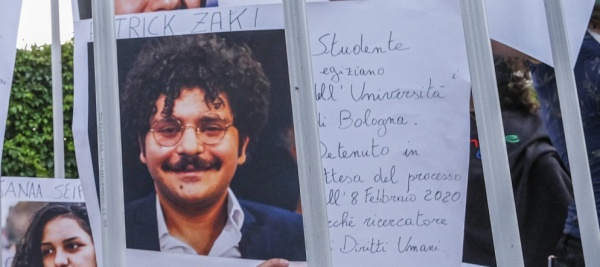 PATRICK ZAKI
Studente
egiziano
dell'Università
di Bologna.
Detenuto in
attesa del processo
dall'8 Febbraio 2020
perché ricercatore
di Diritti Umani.
SANAA SEIF